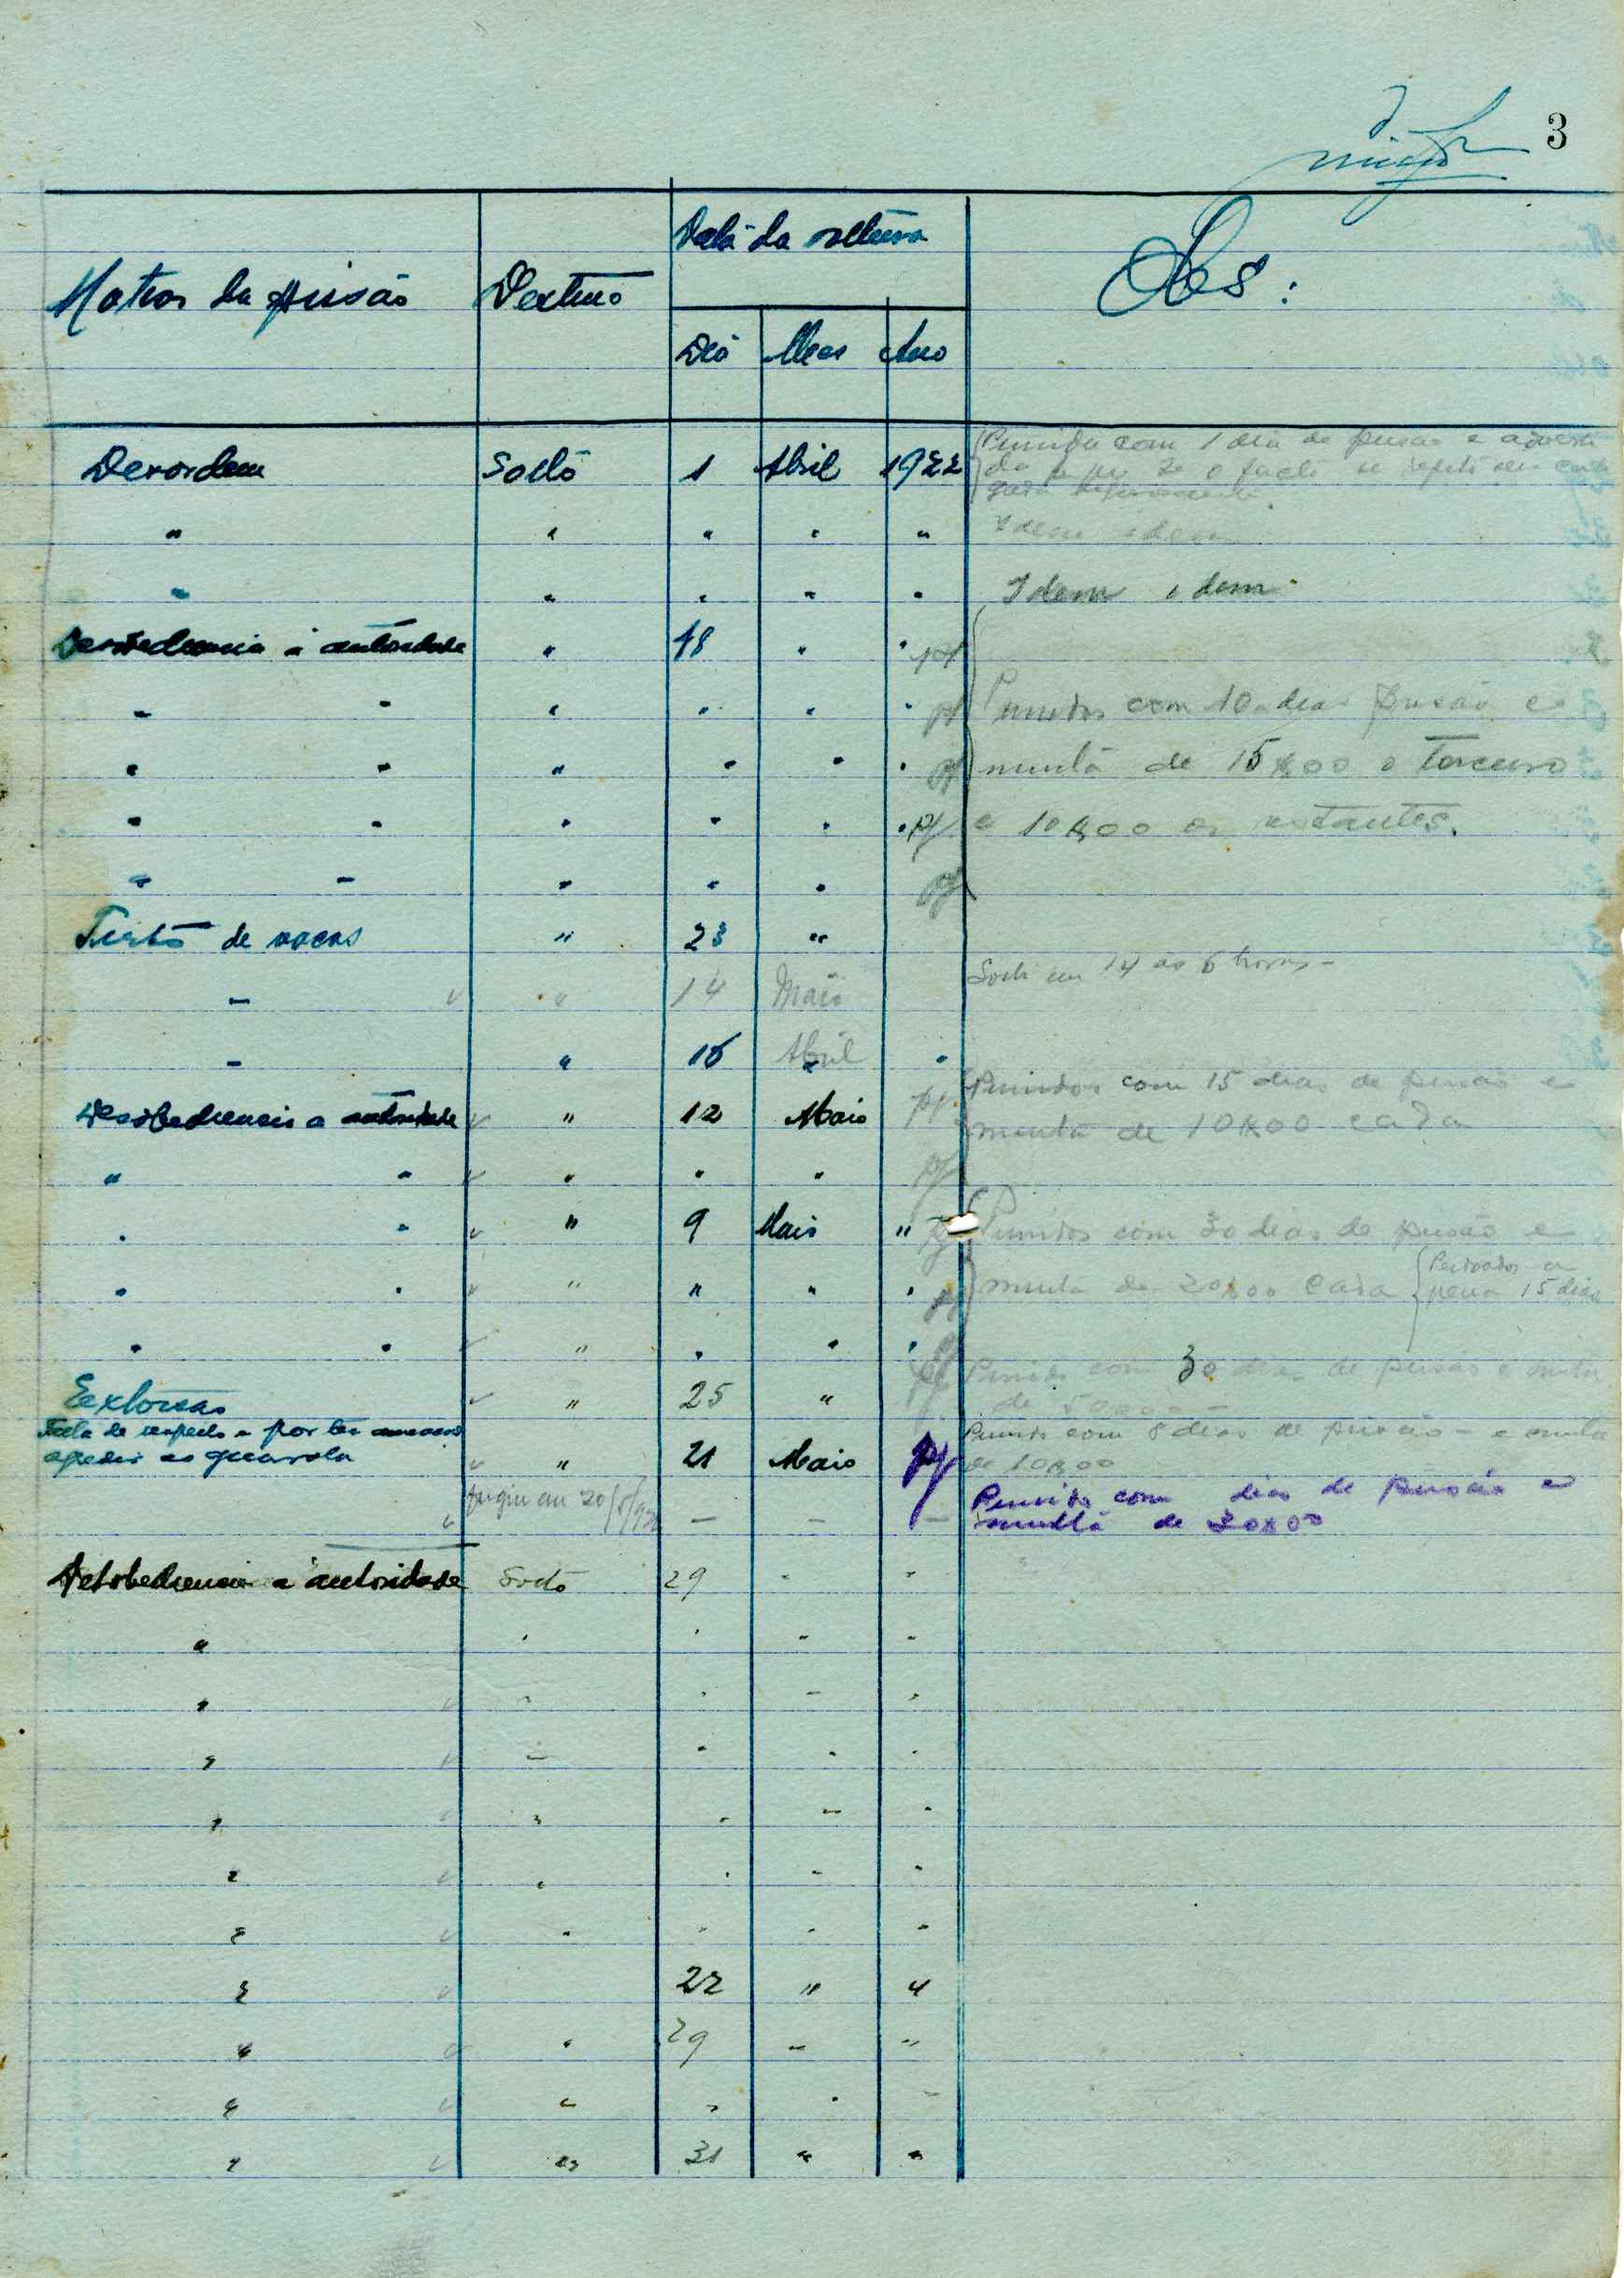 3
Data da soltura
Motivo da prisão Destino Obs:
Dia Mes Ano
Punido com 1 dia de prisão e
Desordem Solto 1 Abril 1922
o facto se
" " " " " Idem idem
" " " " " Idem idem
Desobediencia á autoridade " 18 " "
" " " " " " Punidos com 10 dias prisão e
" " " " " " multa de 15$00 o terceiro
" " " " " " e 10$00 os restantes.
" " " " "
Furto de vacas " 23 "
Solto em 14 ás 6 horas -
" " 14 Maio
" " 16 Abril "
Punidos com 15 dias de prisão e
Desobediencia a autoridade " 12 Maio
multa de 10$00 cada
" " " " "
" " " 9 Maio " Punidos com 30 dias de prisão e
" " " " " " multa de 20$00 cada
pena 15 dias
" " " " " "
Punido com 30 dias de prisão e multa
Extorsão " 25 "
de
Falta de respeito e por ter
Punido com 8 dias de prisão - e multa
agredir ao guarda " 21 Maio
de 10$00
fugiu em 20/5/922 - - -
Punido com dias de prisão e
multa de 20$00
Desobediencia a autoridade Solto 29 " "
" " " " "
" " " " "
" " " " "
" " " " "
" " " " "
" " " " "
" 22 " "
" " 29 " "
" " " " "
" " 31 " "